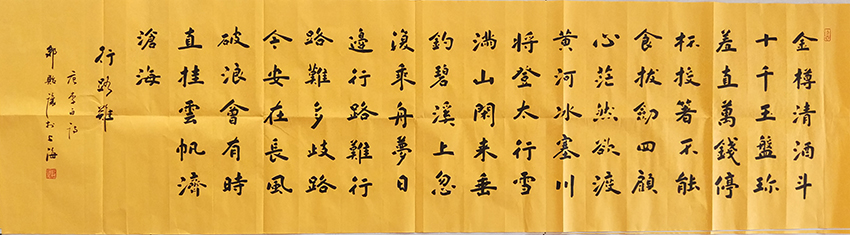 金樽清酒斗
十千玉盤珎
羞直萬錢停
杯投箸不能
食拔劍四顧
心茫然欲渡
黄河冰塞川
將登太行雪
滿山閑来垂
釣碧溪上忽
復乘舟夢日
邊行路難行
路難多歧路
今安在長風
破浪會有時
直挂雲帆濟
滄海
行路難
唐李白詩
於上海